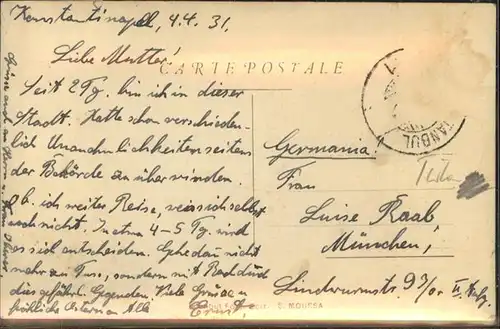 Konstantinopel, 4.4.31.
Liebe Mutter!
CARTE POSTALE
Seit 2 Tg. bin ich in dieser
Stadt. Hatte schon verschieden-
lich Unannehmlichkeiten seitens
der Behörde zu überwinden.
Ob. ich weiter Reise, weiss ich selbst
noch nicht. In etwa 4-5 Tg. wird
es sich entscheiden. Gehe dau nicht
mehr zu Fuss, sondern mit Rad durch
die gefährl. Gegenden. Viele Grüsse u.
fröhliche Ostern an Alle
Ernst.
Grüsse auch an
ISTANBUL
Germania.
Frau
Luise Raab
München,
Lindwurmstr. 97/or II
MOUSSA